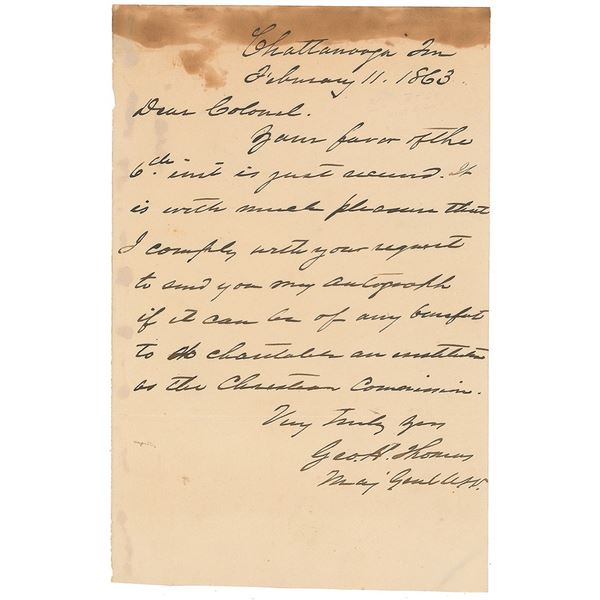 Chattanooga Ten
February 11. 1863.
Dear Colonel.
Your favor of the
6th inst is just received. It
is with much pleasure that
I comply with your request
to send you my autograph
if it can be of any benefit
to so charitable an institution
as the Christian Commission.
Very Truly Yours
Geo. H. Thomas
Maj Genl U.S.V.